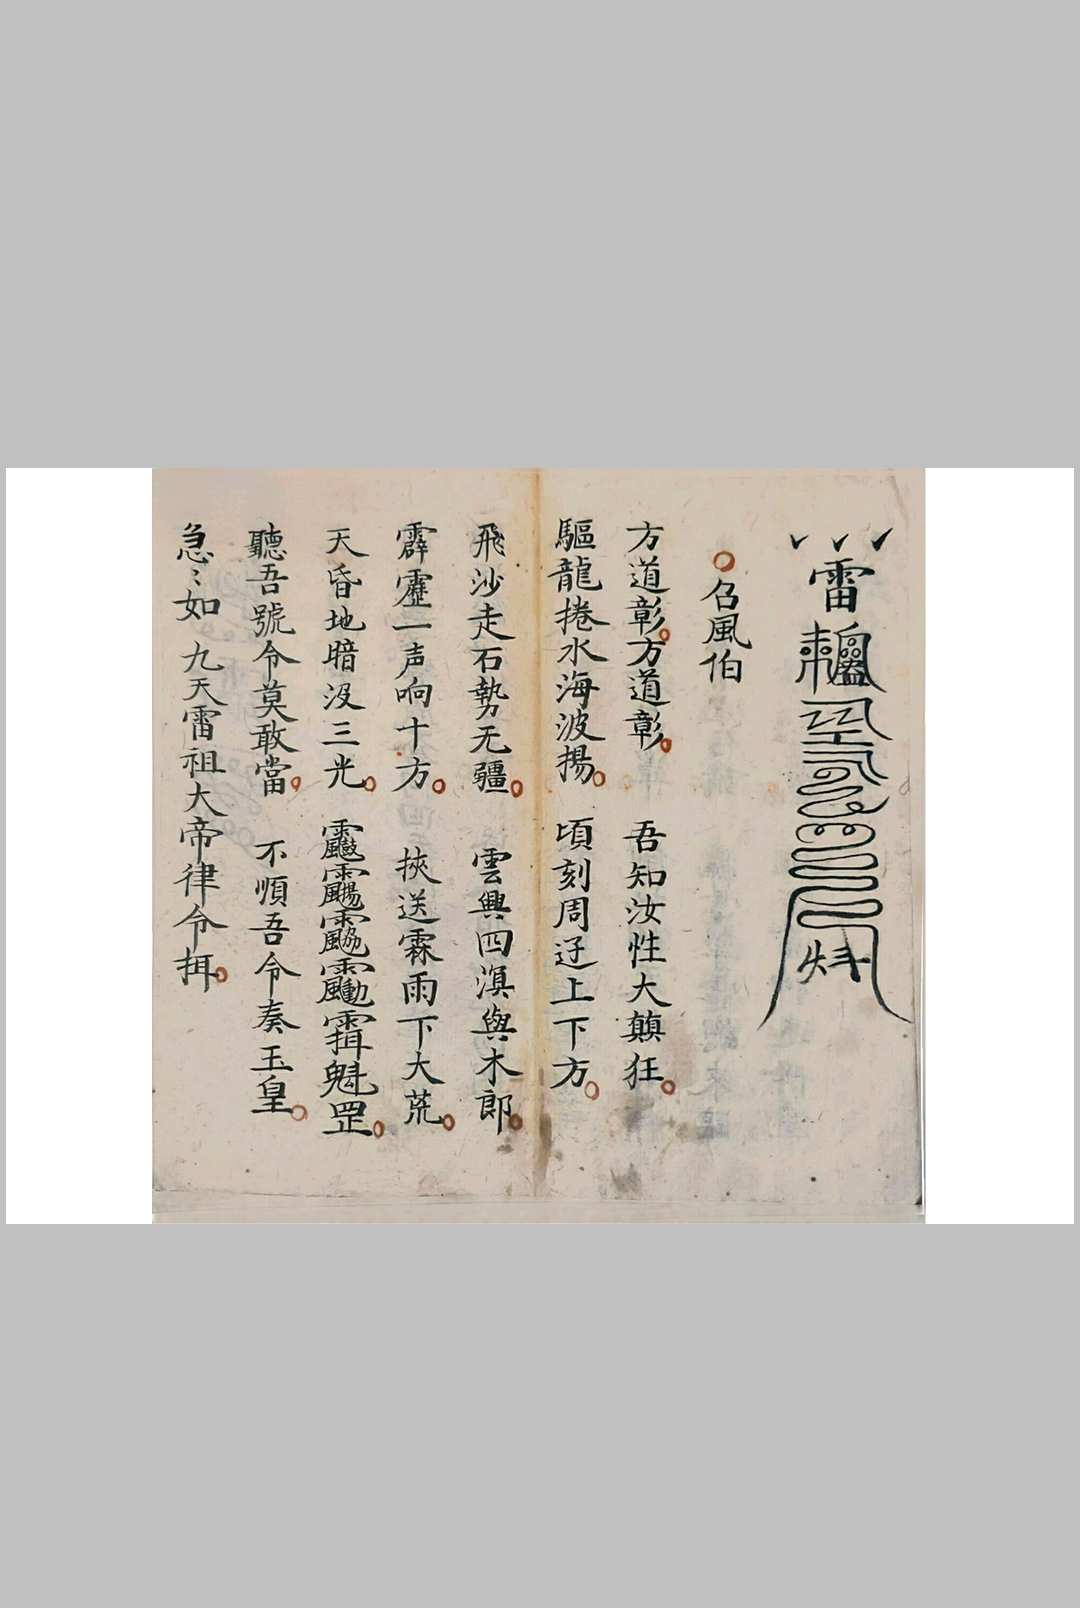 雷
召風伯
方道彰方道彰 吾知汝性大顛狂
驅龍捲水海波揚 頃刻周迋上下方
飛沙走石勢无疆 雲興四溟與木郎
霹靂一声响十方 挾送霖雨下大荒
天昏地暗没三光 魁罡
聽吾號令莫敢當 不順吾令奏玉皇
急〻如 九天雷祖大帝律令